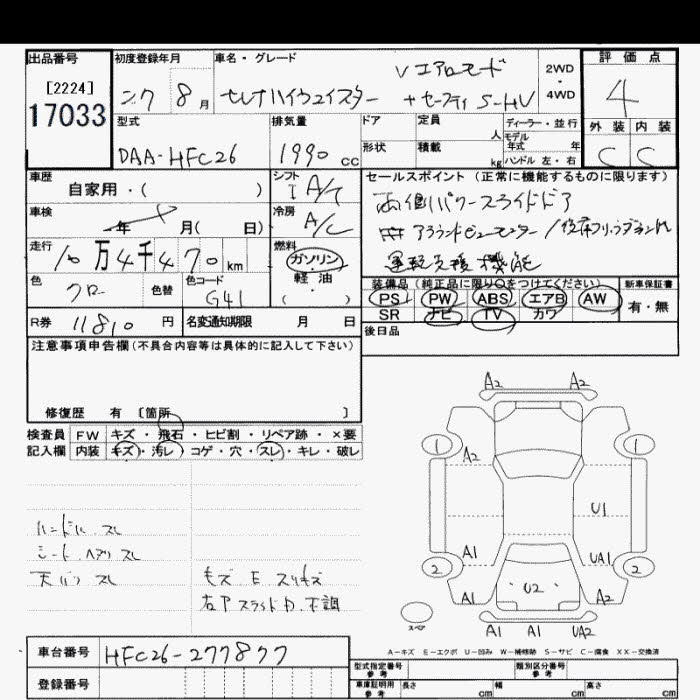 出品番号
[2224]
17033
初度登録年月
27 8月
車名・グレード
Vエアロモード
セレナハイウェイスター +セーフティ S-HV
2WD
・
4WD
評価点
4
外装 内装
C C
型式
DAA-HFC26
排気量
1990 cc
ドア 定員 人
形状 積載 kg
ディーラー・並行
モデル年式 年
ハンドル 左・右
車歴
自家用・( )
シフト
I A/T
車検
年 月( 日)
冷房
A/C
走行
10万4千470 km
燃料
ガソリン
軽油
( )
色
クロ
色替
色コード
G41
R券 11810 円
名変通知期限 月 日
セールスポイント (正常に機能するものに限ります)
両側パワースライドドア
アラウンドビューモニター/後席フリップダウンモニター
運転支援機能
装備品(純正品に限り○をつけてください)
PS PW ABS エアB AW
SR ナビ TV カワ
新車保証書
有・無
後日品
注意事項申告欄(不具合内容等は具体的に記入して下さい)
修復歴 有 〔箇所 〕
検査員 FW キズ・飛石・ヒビ割・リペア跡・×要
記入欄 内装 キズ・汚レ・コゲ・穴・スレ・キレ・破レ
ハンドル スレ
シート ヘタリ スレ
天バリ スレ
キズ E スリキズ
右Pスライド D. 不調
A2 A2
1 1
A2
U1
A1 UA1
2 2
A1 U2 A2
スペア
A1 A1 UA2
A-キズ E-エクボ U-凹み W-補修跡 S-サビ C-腐食 XX-交換済
車台番号 HFC26-277877
登録番号
型式指定番号 参考
類別区分番号 参考
車庫証明用 参考 長さ cm 幅 cm 高さ cm